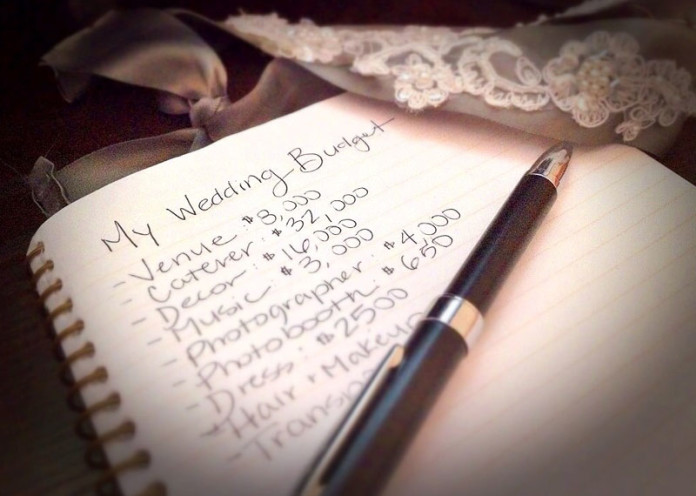 My Wedding Budget
- Venue: $8,000
- Caterer: $32,000
- Decor: $16,000
- Music: $3,000
- Photographer: $4,000
- Photobooth: $650
- Dress: $2500
- Hair + Makeup